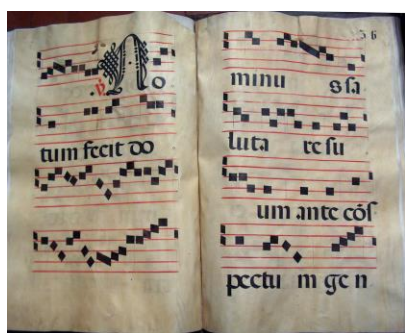 ℣. No
tum fecit do
36
minus sa
lutare su
um ante cōs
pectum gen